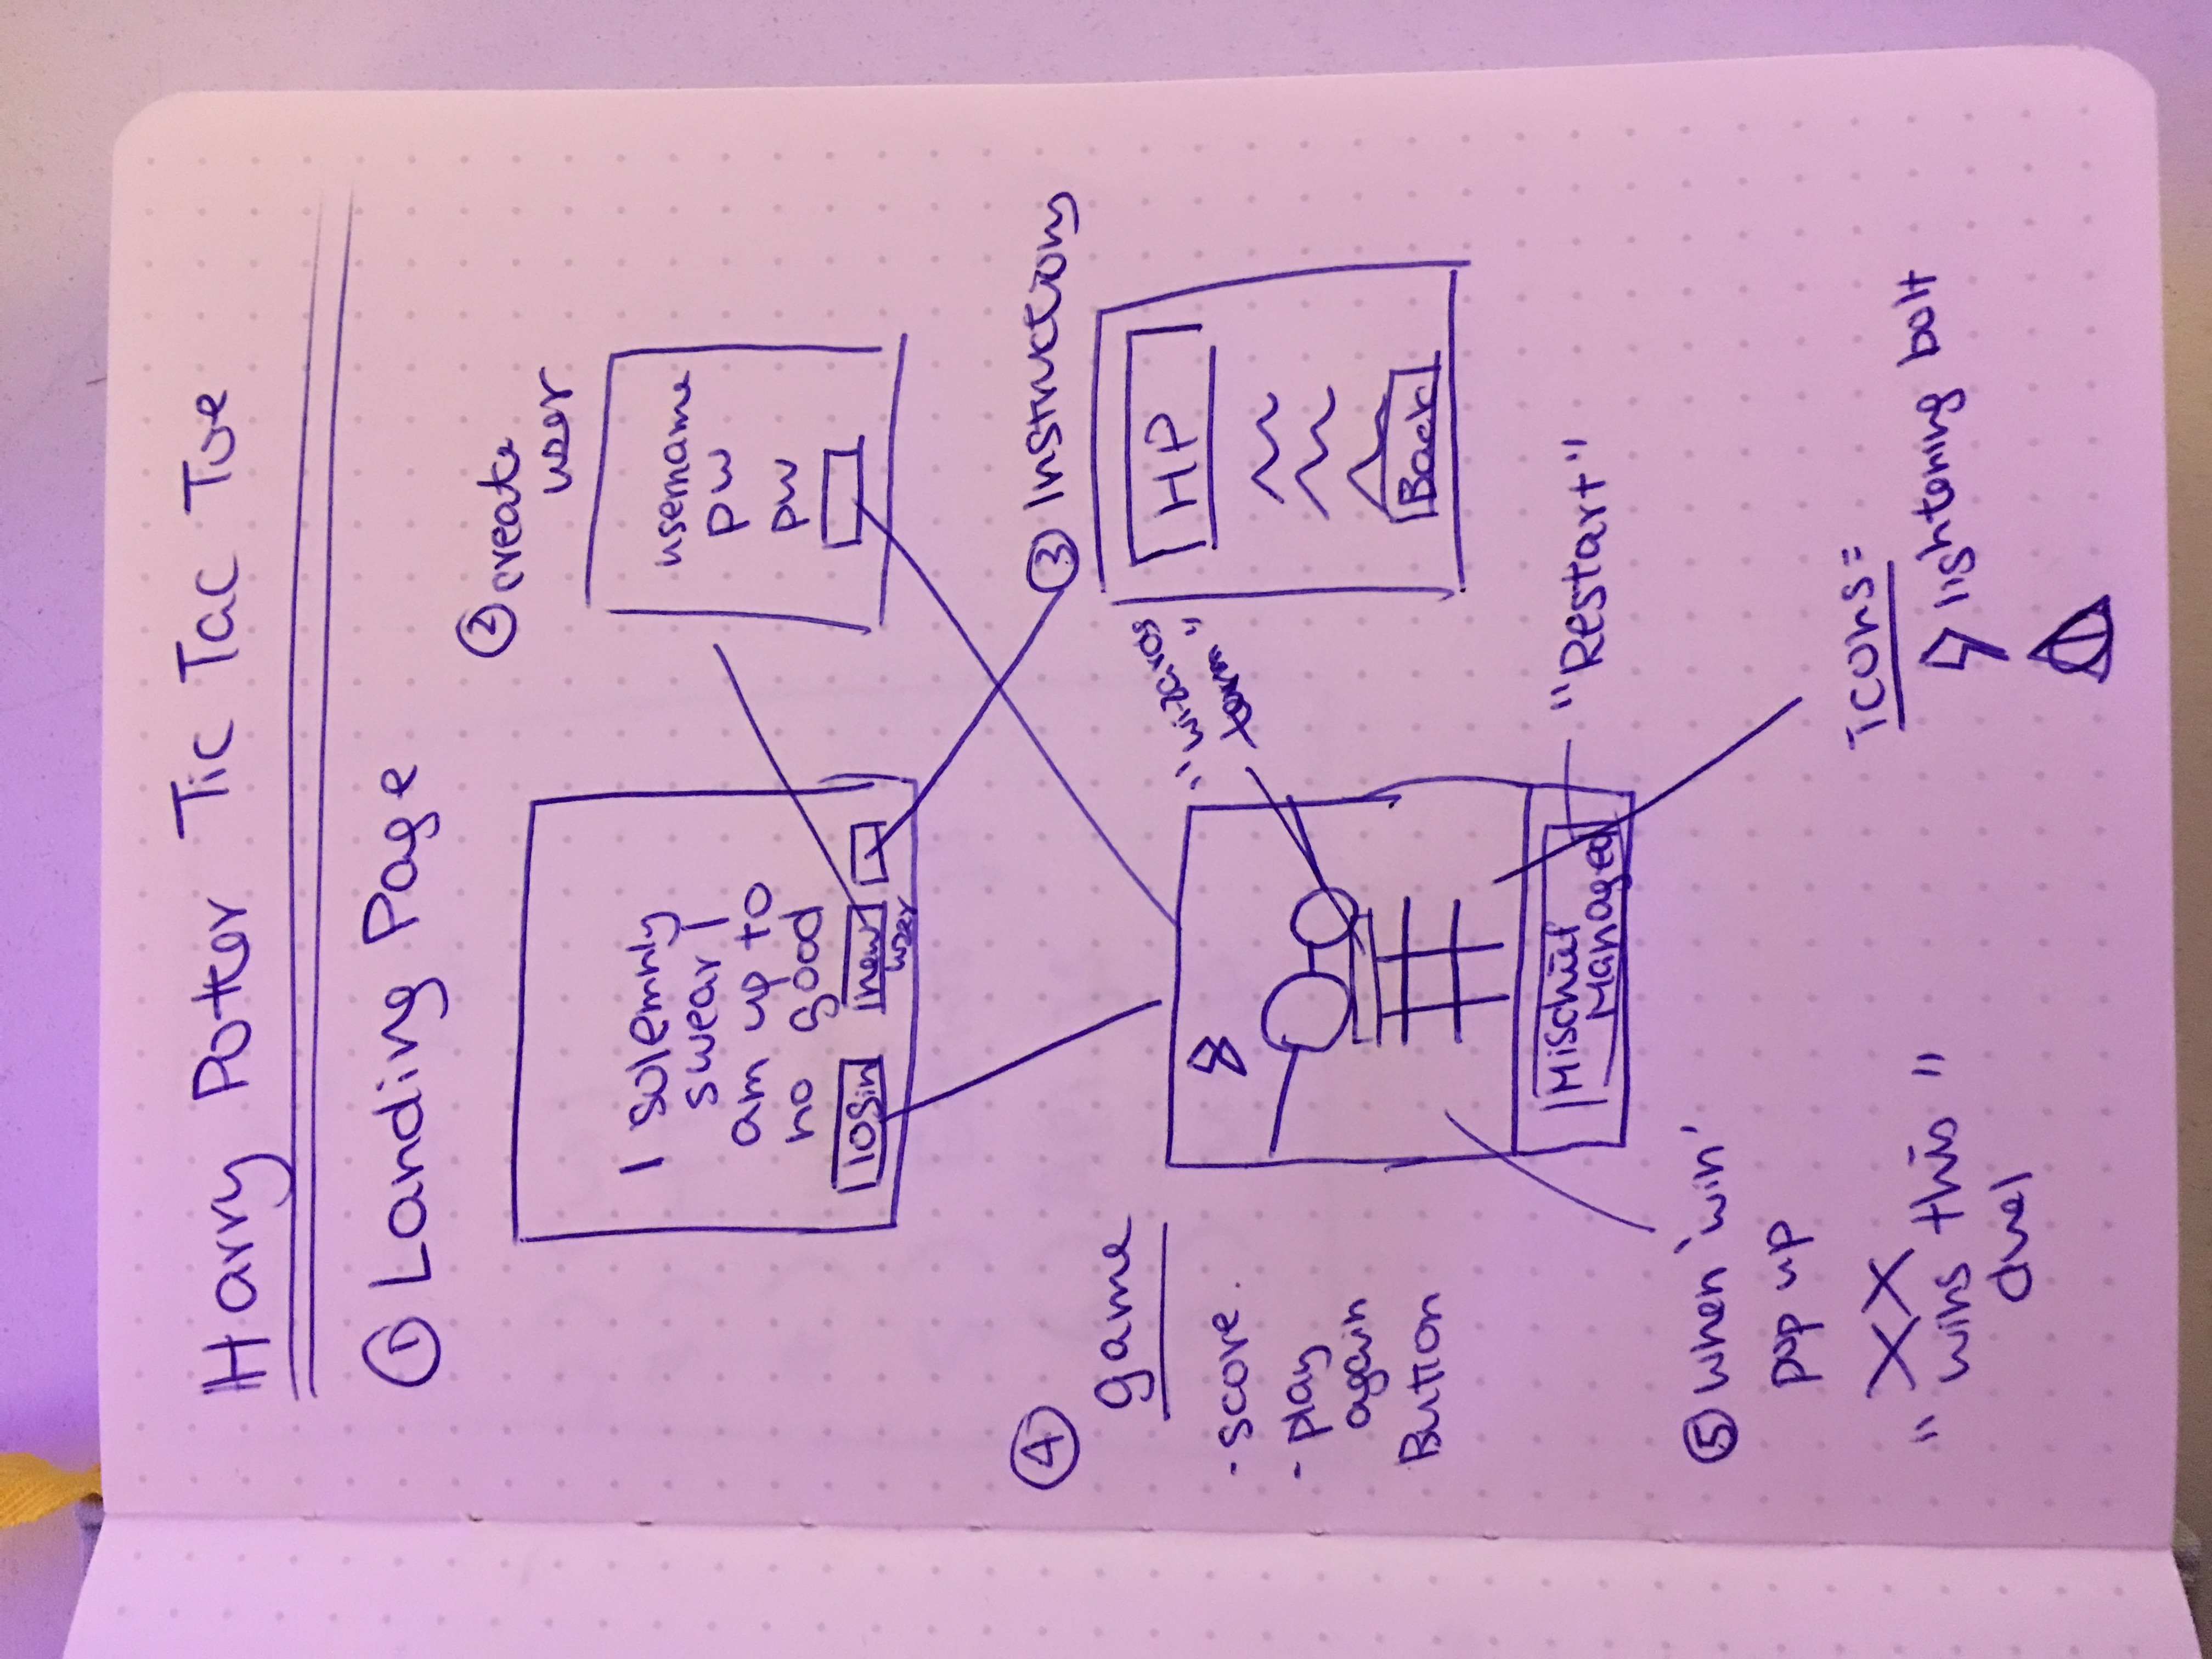 Harry Potter Tic Tac Toe
① Landing Page
② create
user
I solemnly
swear I
am up to
no good
login
new
user
username
pw
pw
③ Instructions
HP
Back
④
game
- score.
- play
again
Button
"wizards
turn"
Mischief
Managed
"Restart"
⑤ when 'win'
pop up
XX
" wins this "
duel
icons =
lightening bolt